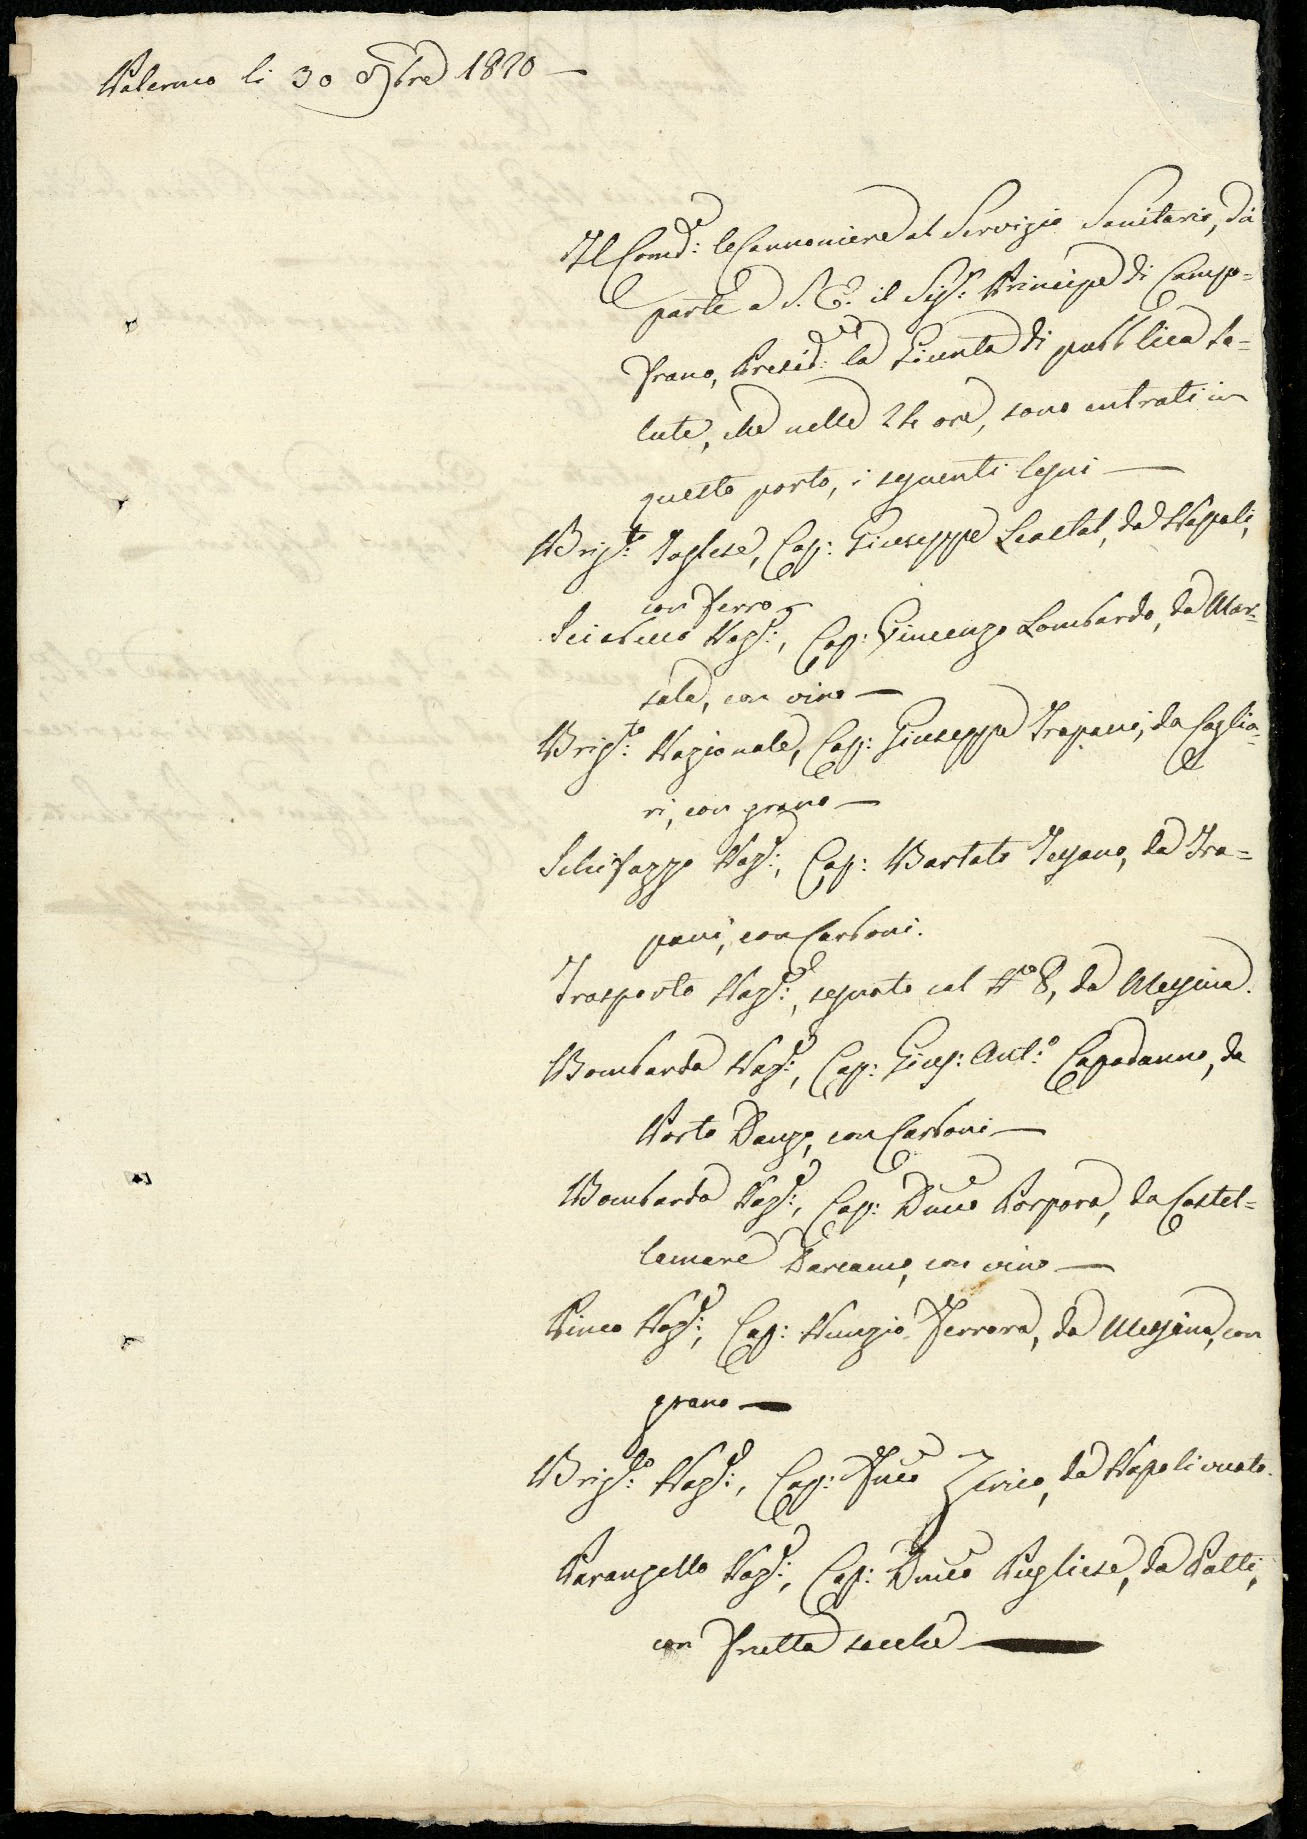 Palermo li 30 8bre 1820 —
Il Comd.e le Cannoniere al Servizio Sanitario, dà
parte a S. E. il Sig.r Principe di Campo=
franco, Presid.e la Giunta di pubblica Sa=
lute, che nelle 24 ore, sono entrati in
questo porto, i seguenti legni —
Brig.to Inglese, Cap: Giuseppe da Napoli,
con ferro —
Sciabecco Naz.e, Cap: Vincenzo Lombardo, da Mar=
sala, con vino —
Brig.to Nazionale, Cap: Giuseppe Trapani, da Caglia=
ri, con grano —
Schifazzo Naz.e, Cap: da Tra=
pani, con Carboni.
Trasporto Naz.e, segnato col N.o 8, da Messina.
Bombarda Naz.e, Cap: Gius: Ant.o Capodanno, da
Porto Danzo, con Carboni —
Bombarda Naz.e, Cap: Dmco Porpora, da Castel=
lamare con vino —
Pinco Naz.e, Cap: Nunzio Ferrara, da Messina, con
grano —
Brig.no Naz.e, Cap: Fnco da Napoli vuoto.
Paranzello Naz.e, Cap: Dmco Pugliese, da Patti,
con frutta secche —